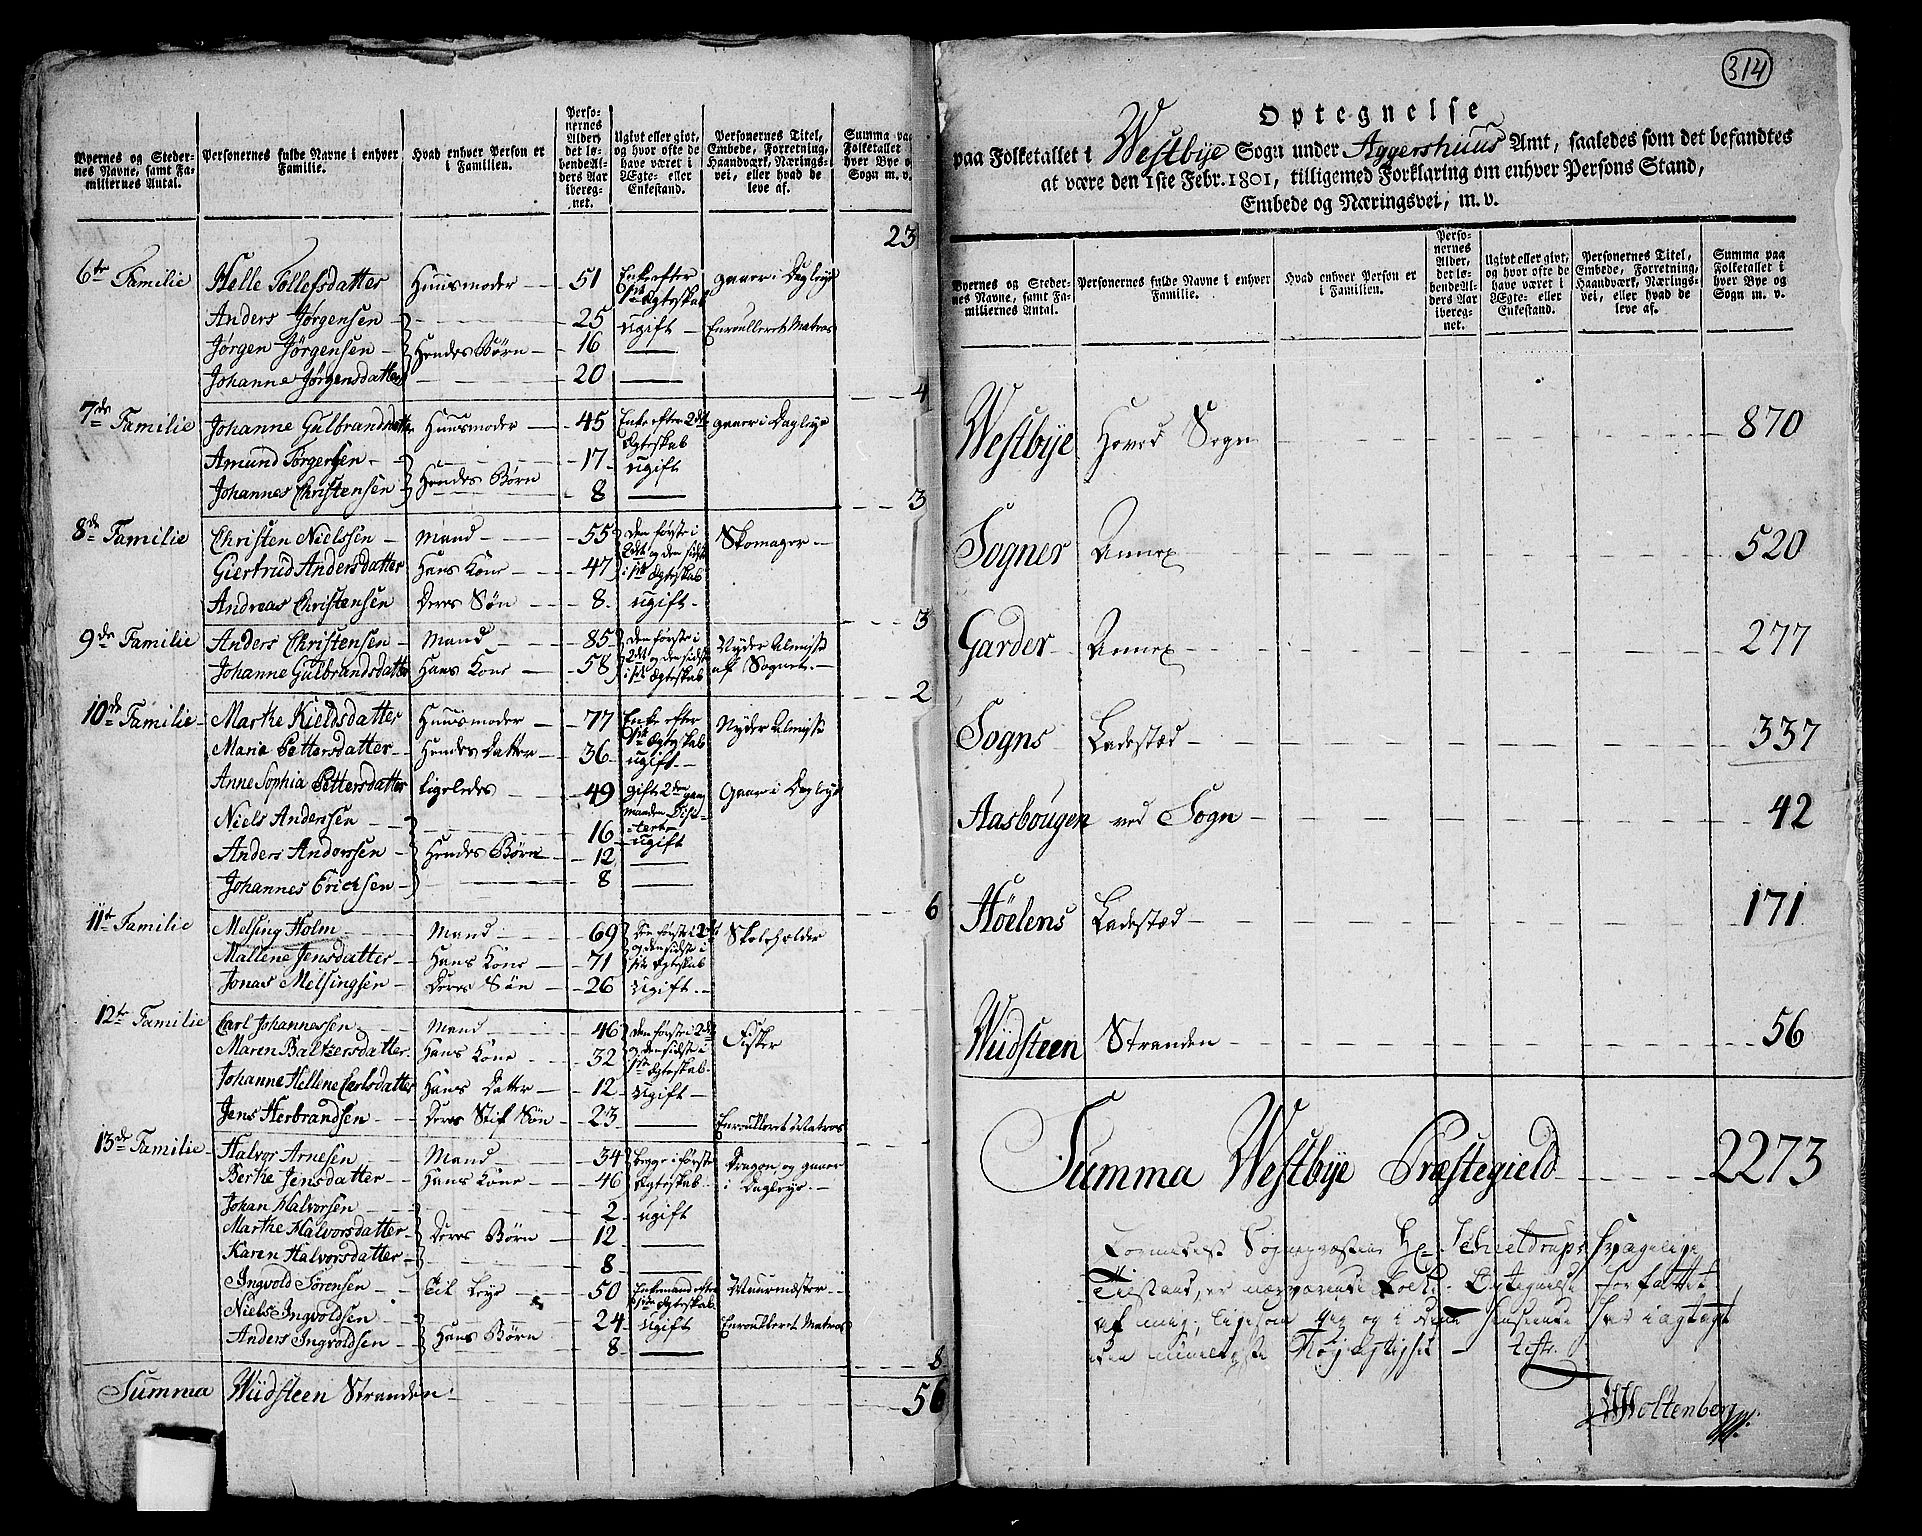 Byernes og Steder-
nes Navne, samt Fa-
miliernes Antal.
Personernes fulde Navne i enhver
Familie.
Hvad enhver Person er
i Familien.
Perso-
nernes
Alder,
det lø-
bende Al-
ders Aar
ibereg-
net.
Ugivt eller givt,
og hvor ofte de
have været i
Ægte- eller
Enkestand.
Personernes Titel,
Embede, Forretning,
Haandværk, Nærings-
vei, eller hvad de
leve af.
Summa paa
Folketallet i
hver Bye og
Sogn m. v.
23
6te Familie Helle Tollefsdatter Huusmoder 51 Enke efter 1ste Ægteskab gaaer i Dagleye
Anders Jørgensen 25 ugift Enroulleret Matros
Jørgen Jørgensen Hendes Børn 16
Johanne Jørgensdatter 20
4
7de Familie Johanne Gulbrandsdatter Huusmoder 45 Enke efter 2det Ægteskab gaaer i Dagleye
Amund Torgersen 17 ugift
Johannes Christensen Hendes Børn 8
3
8de Familie Christen Nielssen Mand 55 Den første i 2det og den sidste Skomager
Giertrud Andersdatter Hans Kone 47 i 1ste Ægteskab
Andreas Christensen Deres Søn 8 ugift
3
9de Familie Anders Christensen Mand 85 Den første i Nyder Almisse
Johanne Gulbrandsdatter Hans Kone 58 2det og den sidste i 1ste Ægteskab af Sognet
2
10de Familie Marthe Kieldsdatter Huusmoder 77 Enke efter 1ste Ægteskab Nyder Almisse
Marie Pettersdatter Hendes Datter 36 ugift
Anne Sophia Pettersdatter Ligeledes 49 gift 2den gang manden Gaaer i Dagleye
Niels Anderssen 16 ugift
Anders Anderssen Hendes Børn 12
Johannes Ericksen 8
6
11te Familie Melsing Holm Mand 69 Den første i 2det Skoleholder
Mallene Jensdatter Hans Kone 71 og den sidste i 1ste Ægteskab
Jonas Melsingsen Deres Søn 26 Ugift
12te Familie Carl Johannessen Mand 46 Den første i 2det Fisker
Maren Baltzersdatter Hans Kone 32 og den sidste i 1ste Ægteskab
Johanne Hellene Carlsdatter Hans Datter 12 Ugift
Jens Herbrandsen Deres Stif Søn 23 Enroulleret Matros
13de Familie Halvor Arnesen Mand 34 begge i første Dragon og gaaer
Berthe Jensdatter Hans Kone 46 Ægteskab i Dagleye
Johan Halvorsen 2 ugift
Marthe Halvorsdatter Deres Børn 12
Karen Halvorsdatter 8
Ingvold Sørensen Til Leye 50 Enkemand efter 1ste Ægteskab Muurmæster
Niels Ingvoldsen 24 Ugift Enroulleret Matros
Anders Ingvoldsen Hans Børn 8
8
Summa Wiidsteen Stranden 56
314
Optegnelse
paa Folketallet i Westbye Sogn under Aggershuus Amt, saaledes som det befandtes
at være den 1ste Febr. 1801, tilligemed Forklaring om enhver Persons Stand,
Embede og Næringsvei, m. v.
Byernes og Steder-
nes Navne, samt Fa-
miliernes Antal.
Personernes fulde Navne i enhver
Familie.
Hvad enhver Person er
i Familien.
Perso-
nernes
Alder,
det lø-
bende Al-
ders Aar
ibereg-
net.
Ugivt eller givt,
og hvor ofte de
have været i
Ægte- eller
Enkestand.
Personernes Titel,
Embede, Forretning,
Haandværk, Nærings-
vei, eller hvad de
leve af.
Summa paa
Folketallet i
hver Bye og
Sogn m. v.
Westbye Hoved Sogn 870
Sogner Annex 520
Garder Annex 277
Sogns Ladestæd 337
Aasbougen ved Sogn 42
Høelens Ladestæd 171
Wiidsteen Stranden 56
Summa Westbye Præstegield 2273
Sognepræsten Hr. Schieldrups svagelige
Tilstand, er nærværende Folke-Optegnelse forfattet
af mig, ligesom jeg og i denne Henseende har iagtaget
den nøieligste Nøjagtighed
Holtenberg